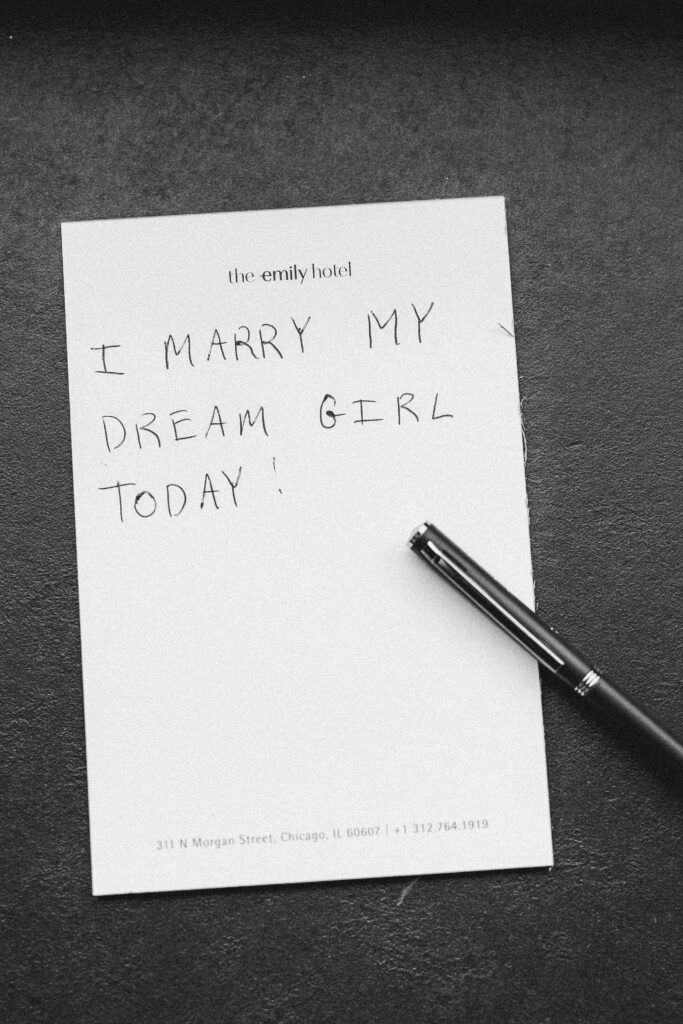 the emily hotel
I MARRY MY
DREAM GIRL
TODAY!
311 N Morgan Street, Chicago, IL 60607 | +1 312.764.1919